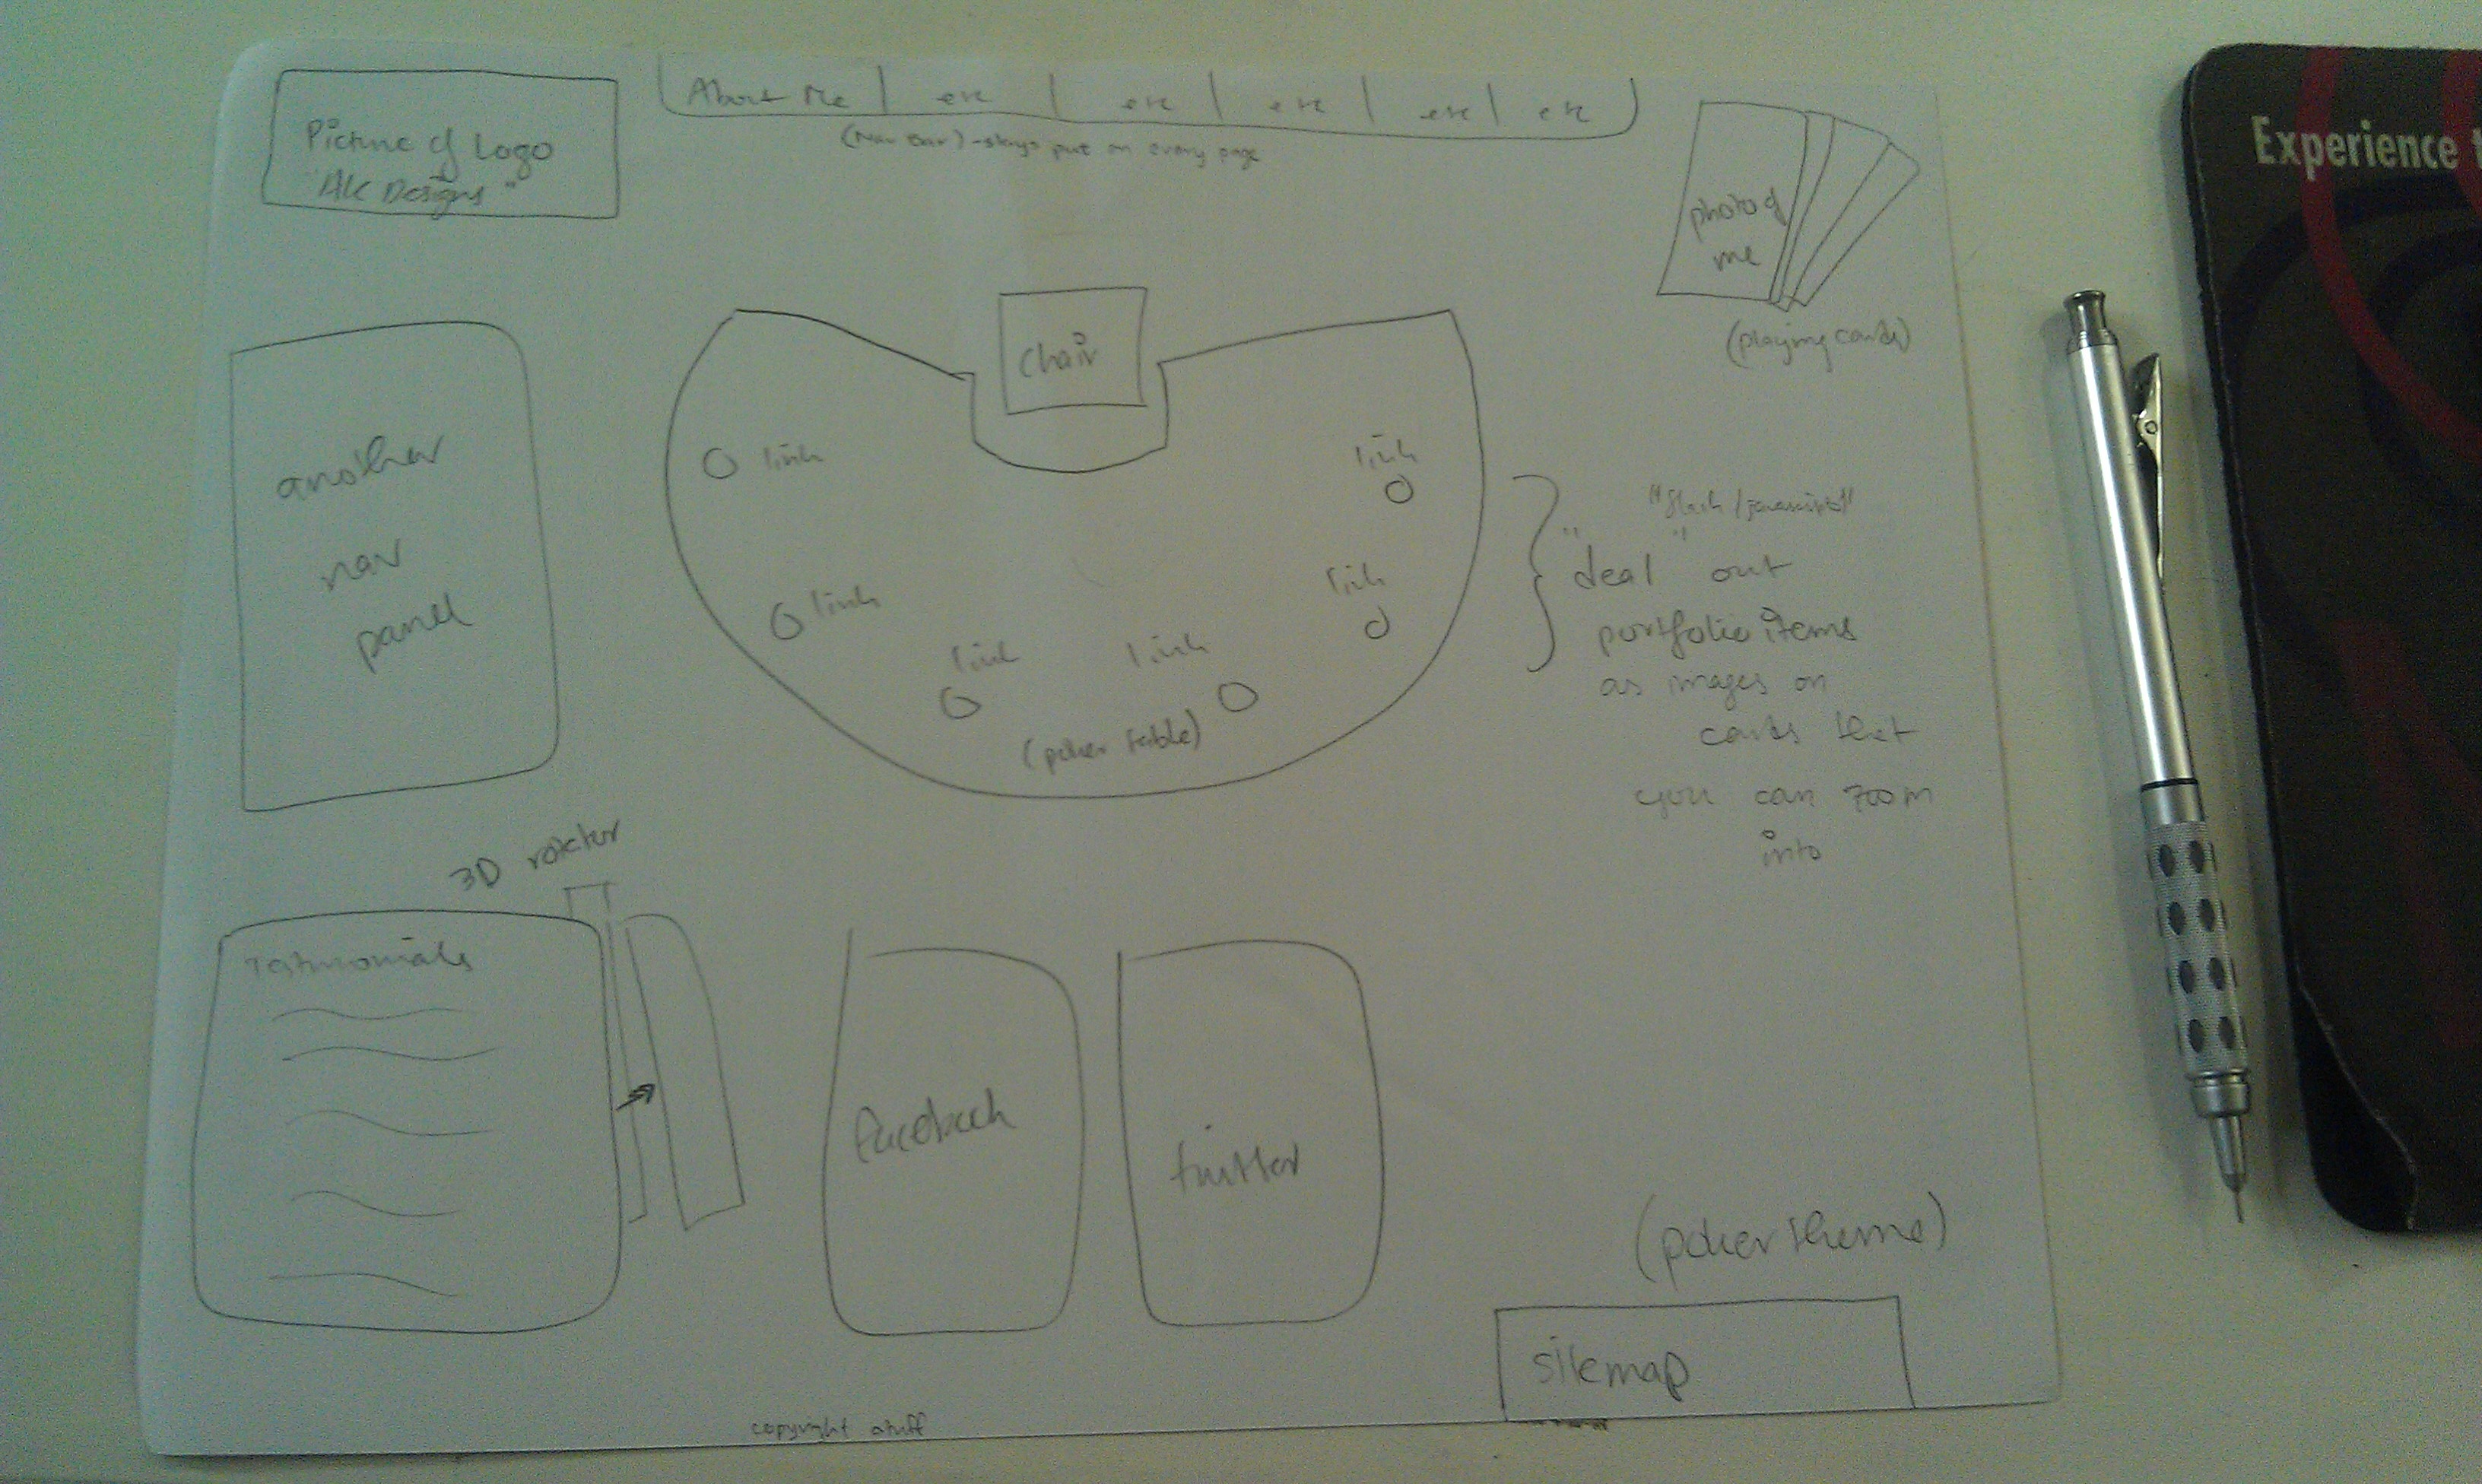 Picture of Logo
"AK Designs"
About Me
etc
etc
etc
etc
etc
(Nav Bar) - stays put on every page
photo of
me
(playing cards)
Experience
another
nav
panel
chair
link
link
link
link
link
link
(poker table)
"flash/javascript"
"deal" out
portfolio items
as images on
cards that
you can zoom
into
3D rotator
Testimonials
facebook
twitter
(poker theme)
sitemap
copyright stuff